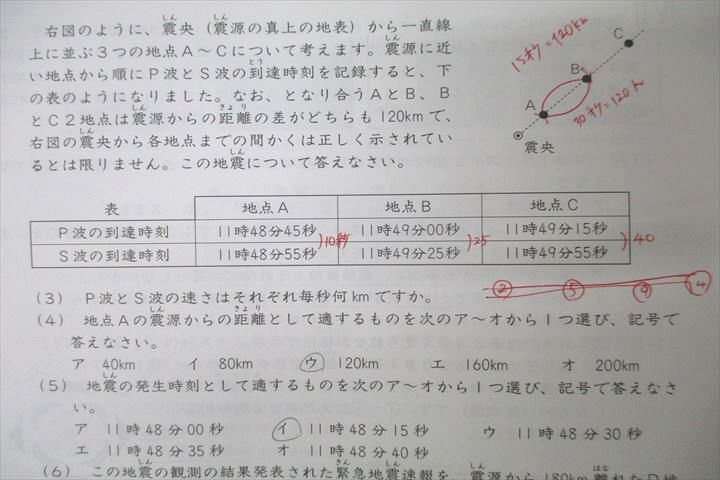 右図のように、震央(震源の真上の地表)から一直線
上に並ぶ3つの地点A〜Cについて考えます。震源に近
い地点から順にP波とS波の到達時刻を記録すると、下
の表のようになりました。なお、となり合うAとB、B
とC2地点は震源からの距離の差がどちらも120kmで、
右図の震央から各地点までの間かくは正しく示されてい
るとは限りません。この地震について答えなさい。
C
B
A
震央
15秒=120km
30秒=120k
表 地点A 地点B 地点C
P波の到達時刻 11時48分45秒 11時49分00秒 11時49分15秒
S波の到達時刻 11時48分55秒 11時49分25秒 11時49分55秒
10秒 25 40
(3) P波とS波の速さはそれぞれ毎秒何kmですか。
② ⑤
(4) 地点Aの震源からの距離として適するものを次のア〜オから1つ選び、記号で
答えなさい。
ア 40km イ 80km ウ 120km エ 160km オ 200km
(5) 地震の発生時刻として適するものを次のア〜オから1つ選び、記号で答えなさ
い。
ア 11時48分00秒 イ 11時48分15秒 ウ 11時48分30秒
エ 11時48分35秒 オ 11時48分40秒
(6) この地震の観測の結果発表された緊急地震速報を、震源から180km離れたD地